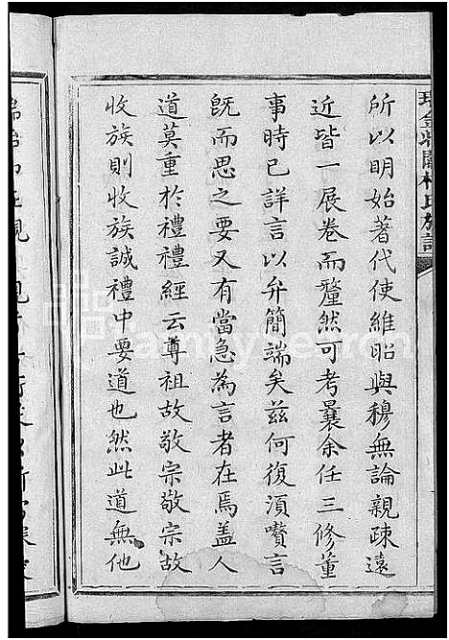 所以明始著代使維昭與穆無論親疎遠
近皆一展卷而釐然可考曩余任三修董
事時已詳言以弁簡端矣茲何復湏贅言
旣而思之要又有當急為言者在焉蓋人
道莫重於禮禮經云尊祖故敬宗敬宗故
收族則收族誠禮中要道也然此道無他